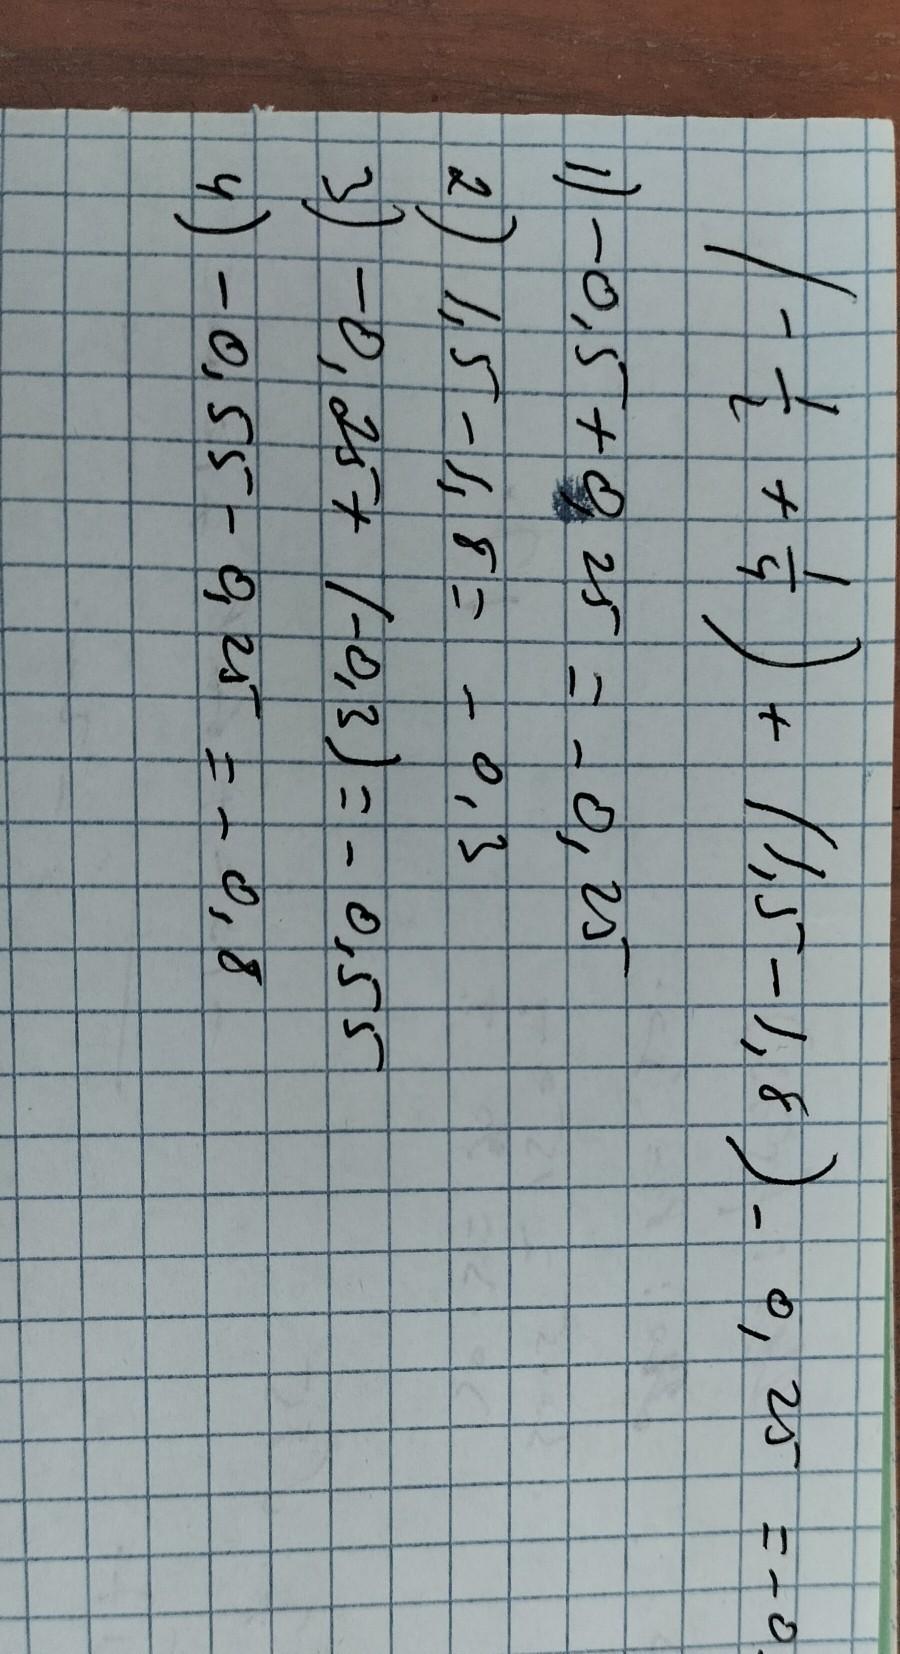 (- 1/2 + 1/4) + (1,5 - 1,8) - 0,25 = - 0,
1) - 0,5 + 0,25 = - 0,25
2) 1,5 - 1,8 = - 0,3
3) - 0,25 + (-0,3) = - 0,55
4) - 0,55 - 0,25 = - 0,8